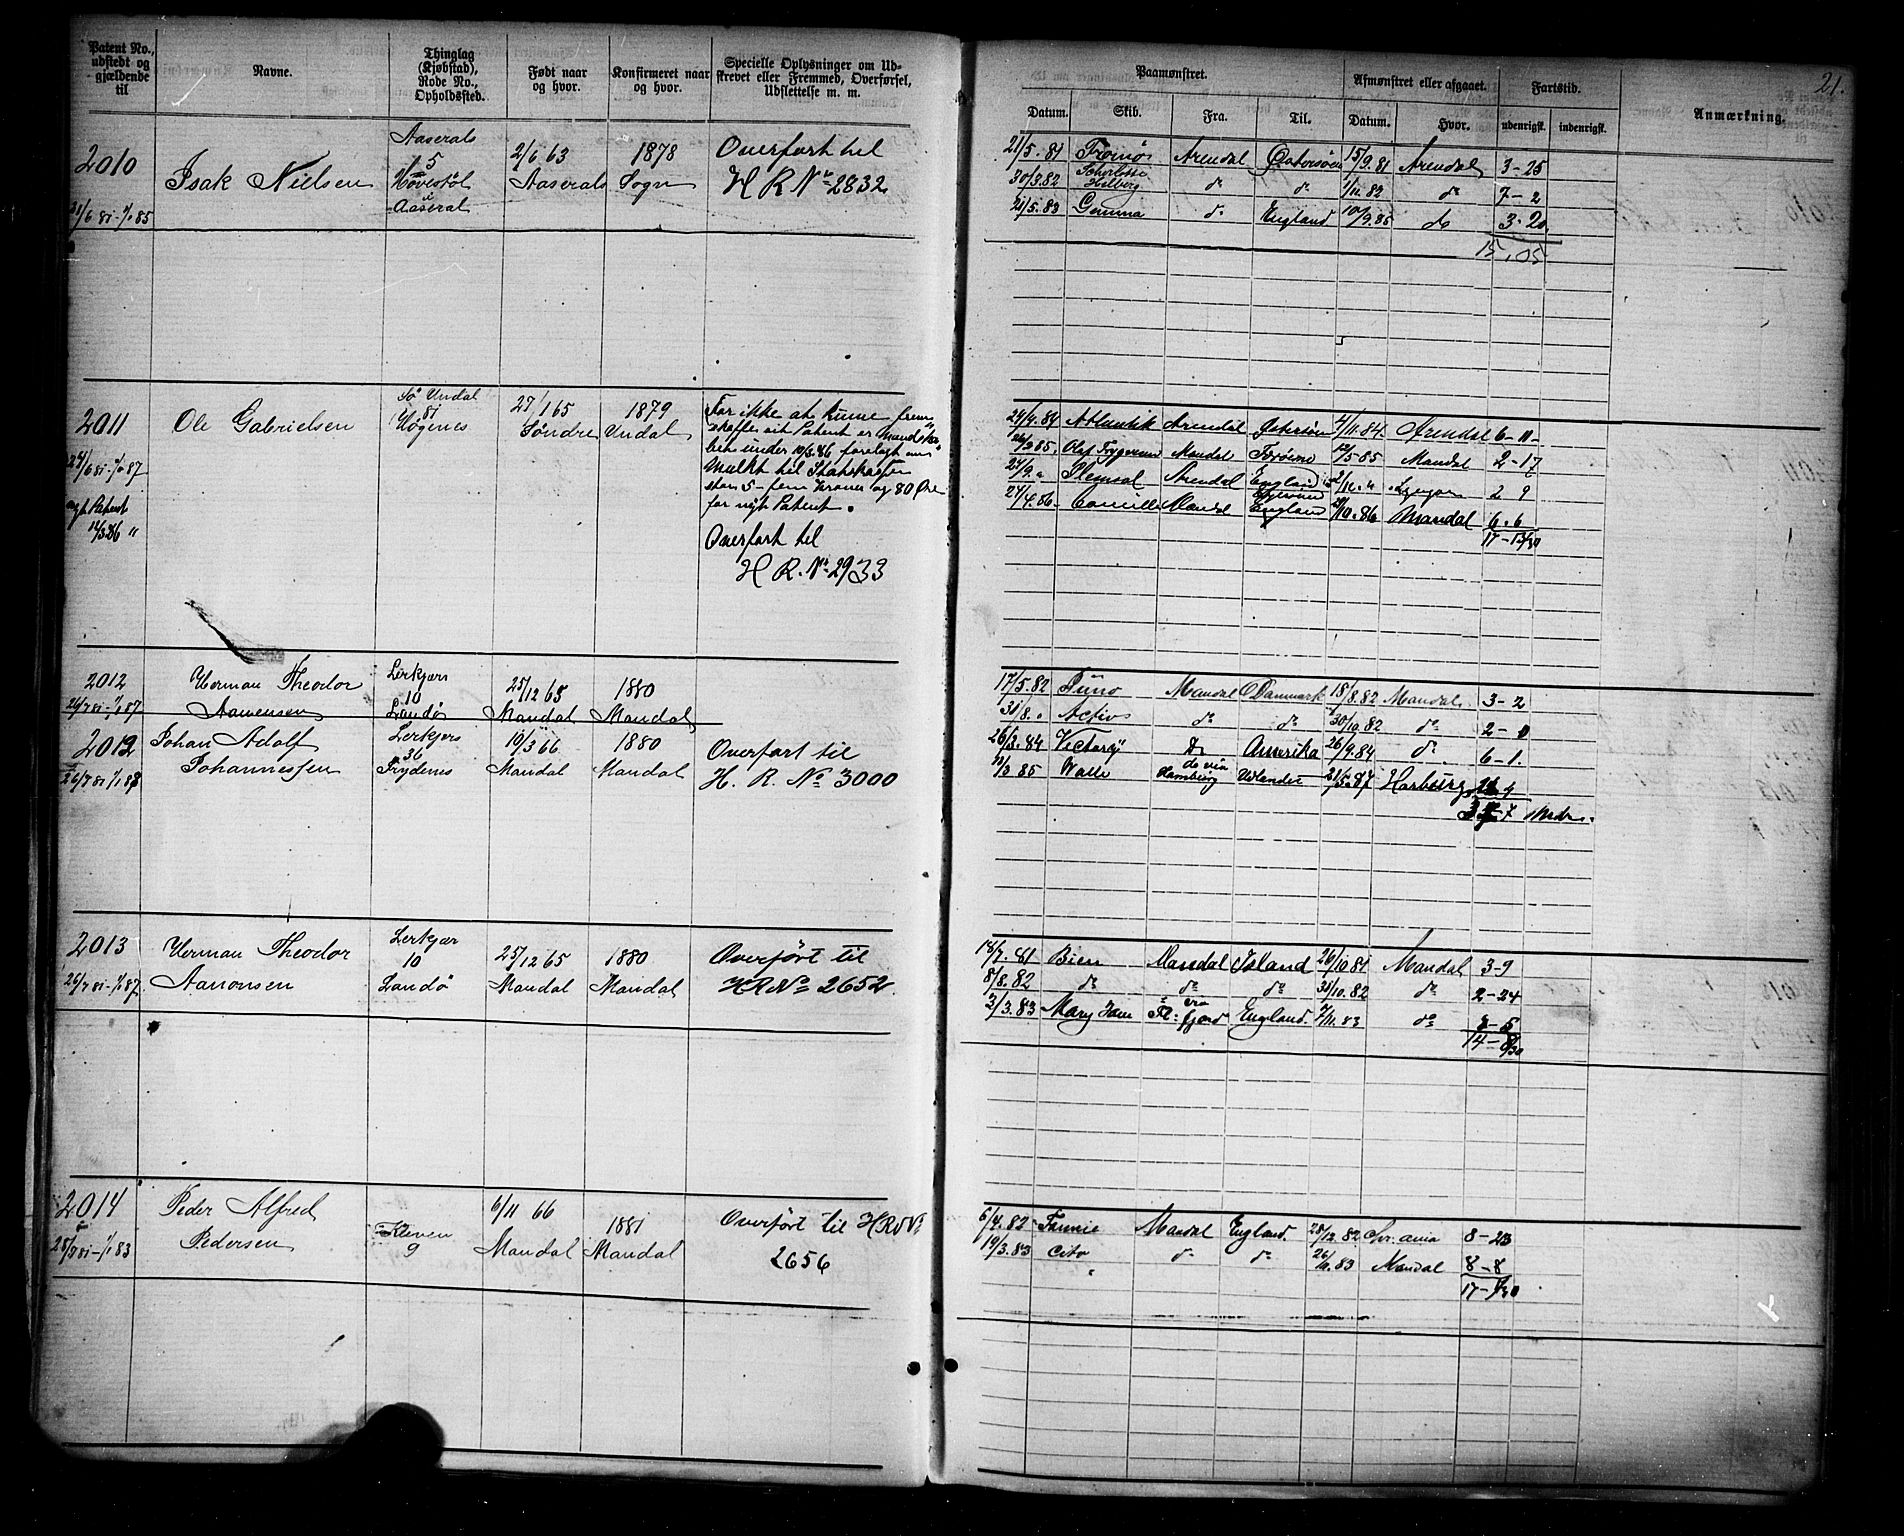 21.
Patent No., udstedt og gjældende til
Navne.
Thinglag (Kjøbstad), Rode No., Opholdssted.
Født naar og hvor.
Konfirmeret naar og hvor.
Specielle Oplysninger om Udskrevet eller Fremmed, Overførsel, Udslettelse m. m.
Paamønstret.
Afmønstret eller afgaaet.
Fartstid.
Anmærkning.
Datum. Skib. Fra. Til. Datum. Hvor. udenrigsk. indenrigsk.
2010 Isak Nielsen
Aaserals 5 Høvestøl i Aaseral
2/6 63 Aaserals
1878 Sogn
Overført til
H R No 2832
21/5.81 Arendal 15/9.81 Arendal 3-25
30/3.82 do do 1/11.82 do 7-2
21/5.83 Gemma do England do 3-20
15.05
2011 Ole Gabrielsen
Sø Undal 81 Høgenes
27/1 65 Søndre
1879 Undal
24/6 81-1/1 87
nyt Patent
For ikke at kunne frem-
skaffe sit Patent er
under 10/3.86 forelagt en
Mulkt til Statskassen
stor 5- fem Kroner og 80 Øre
for nyt Patent.
Overført til
H R. No 2933
24/9.84 Atlantik Arendal 4/11.84 Arendal 6-11-
Mandal 12/5-85 Mandal 2-17
Arendal England 2 9
24/4.86 Camilla Mandal England /10.86 Mandal 6.6
17-13/30
2012 Herman Theodor
Aanensen
Lerkjærs 10 Landø
25/12 65 Mandal
1880 Mandal
26/7 81-1/1 87
2012 Johan Adolf
Johannessen
Lerkjærs 36 Frydenes
19/3 66 Mandal
1880 Mandal
Overført til
H. R. No 3000
17/5.82 Juno Mandal Danmark 18/8.82 Mandal 3-2
31/8. " Activ do do 30/10.82 do 2-0
26/3.84 Victory Do Amerika 26/9.84 do 6-1.
/3 85 Walle do via Hamburg Udlandet 21/5.87 Harburg
2013 Herman Theodor
Aanonsen
Lerkjær 10 Landø
25/12 65 Mandal
1880 Mandal
26/7 81-1/1 87.
Overført til
HR No 2652.
18/7.81 Bien Mandal Island 26/10.81 Mandal 3-9
8/8.82 do do do 31/10.82 do 2-24
3/3.83 Mary Jane via Fl.fjord England. 7/11.83 do 8-5
14-8/30
2014 Peder Alfred
Pedersen
Kleven 9
6/11 66 Mandal
1881 Mandal
25/7 81-1/1 83
Overført til HR No
2656
6/4.82 Fannie Mandal England. 28/12.82 Chr.ania 8-23
19/3.83 Cito do do 26/11.83 Mandal 8-8
17-1/30